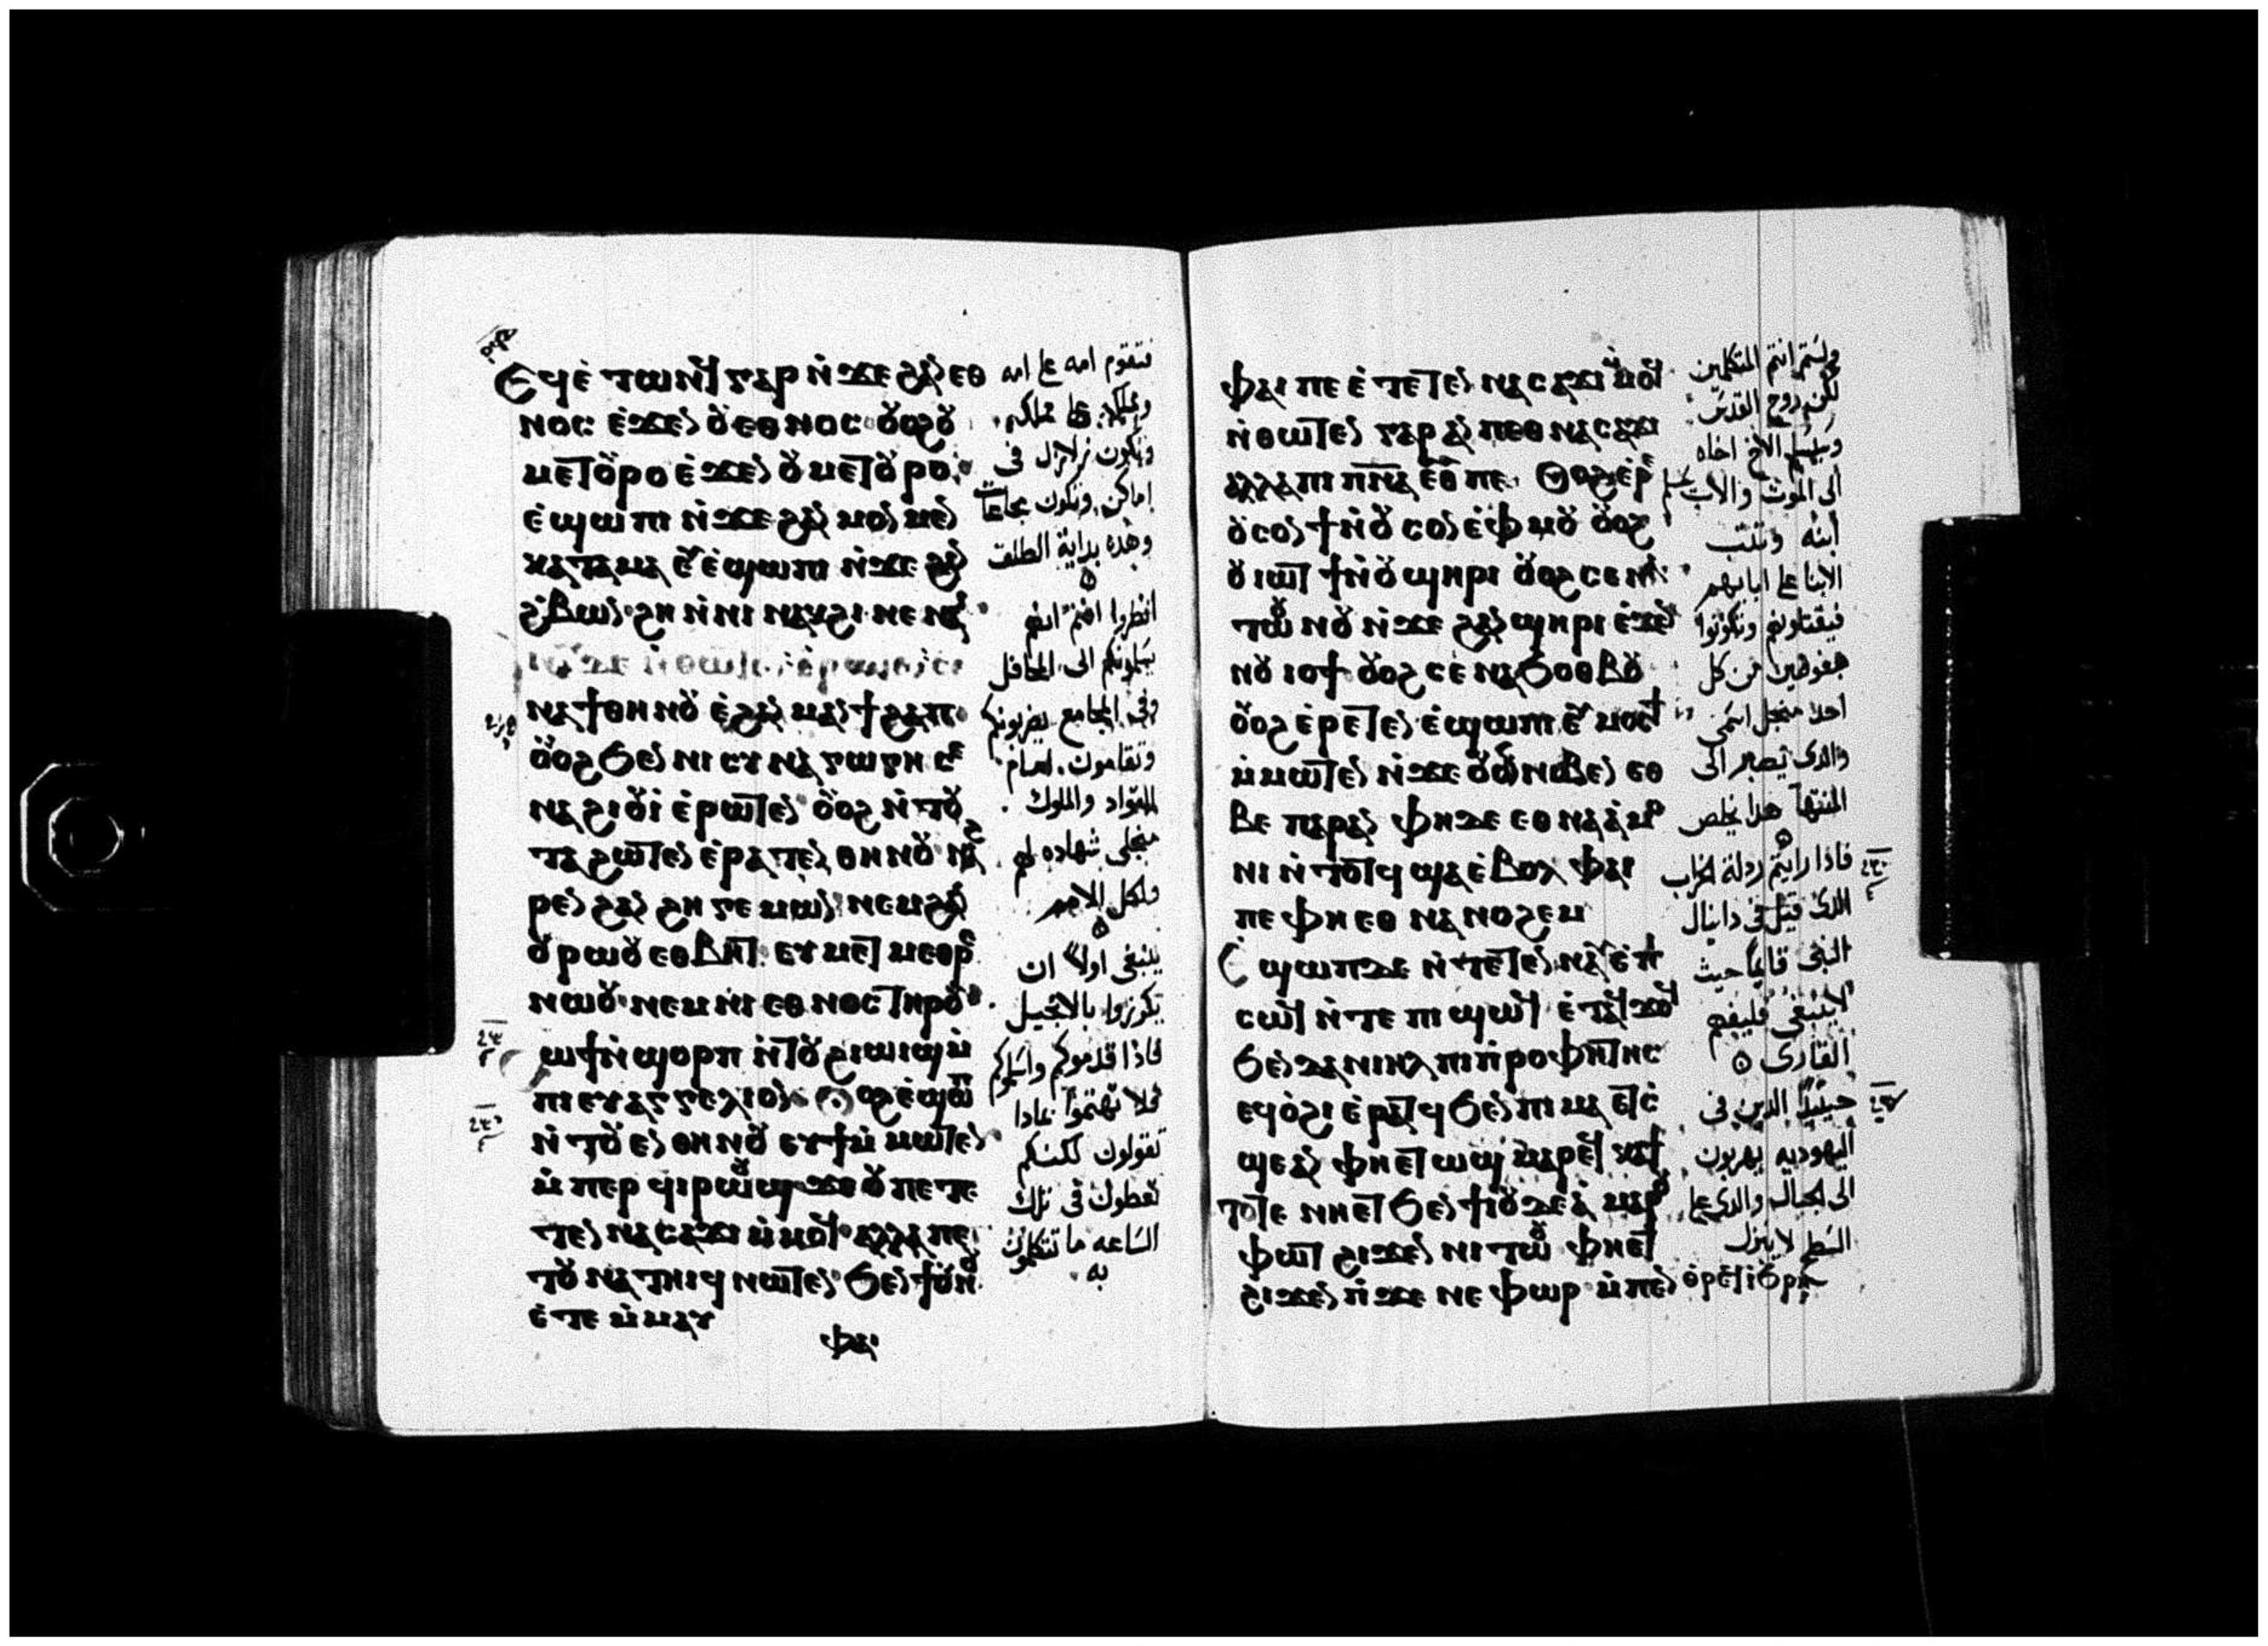 Ϥⲉ̀ ⲧⲱⲛϥ ⲅⲁⲣ ⲛ̀ϫⲉ ϩⲁⲛ ⲉⲑ
ⲛⲟⲥ ⲉ̀ϫⲉⲛ ⲟⲩⲉⲑⲛⲟⲥ ⲟⲩⲟϩ ⲟⲩ
ⲙⲉⲧⲟⲩⲣⲟ ⲉ̀ϫⲉⲛ ⲟⲩⲙⲉⲧⲟⲩⲣⲟ
ⲉ̀ϣⲱⲡⲓ ⲛ̀ϫⲉ ϩⲁⲛ ⲙⲟⲛ ⲙⲉⲛ
ⲕⲁⲧⲁ ⲙⲁ ⲉⲩⲉ̀ϣⲱⲡⲓ ⲛ̀ϫⲉ ϩⲁⲛ
ϩ̀ⲃⲱⲛ ϩⲏ ⲛ̀ⲛⲓ ⲛⲁⲕϩⲓ ⲛⲉ ⲛⲁⲓ
ⲛⲁϯⲑⲏⲛⲟⲩ ⲉ̀ϩⲁⲛ ⲙⲁⲛϯϩⲁⲡ
ⲟⲩⲟϩ ϧⲉⲛ ⲛⲓ ⲥⲩⲛⲁⲅⲱⲅⲏ ⲥⲉ
ⲛⲁϩⲓⲟⲩⲓ̀ ⲉ̀ⲣⲱⲧⲉⲛ ⲟⲩⲟϩ ⲛ̀ⲧⲟⲩ
ⲧⲁϩⲱⲧⲉⲛ ⲉ̀ⲣⲁⲧⲉⲛ ⲑⲏⲛⲟⲩ ⲛⲁϩ
ⲣⲉⲛ ϩⲁⲛ ϩⲏⲅⲉⲙⲱⲛ ⲛⲉⲙ ϩⲁⲛ
ⲟⲩⲣⲱⲟⲩ ⲉⲑⲃⲏⲧ ⲉⲩⲙⲉⲧⲙⲉⲑⲣⲉ
ⲛⲱⲟⲩ ⲛⲉⲙ ⲛⲓ ⲉⲑⲛⲟⲥ ⲧⲏⲣⲟⲩ
ϩⲱϯ ⲛ̀ϣⲟⲣⲡ ⲛ̀ⲧⲟⲩϩⲓⲱⲓϣ ⲙ̀
ⲡⲓ ⲉⲩⲁⲅⲅⲉⲗⲓⲟⲛ ⲟⲩⲟϩ ⲉ̀ϣⲱⲡ
ⲛ̀ⲧⲟⲩⲉⲛ ⲑⲏⲛⲟⲩ ⲉⲩϯ ⲙ̀ⲙⲱⲧⲉⲛ
ⲙ̀ⲡⲉⲣ ϥⲓⲣⲱⲟⲩϣ ϫⲉ ⲟⲩ ⲡⲉⲧⲉ
ⲧⲉⲛ ⲛⲁⲥⲁϫⲓ ⲙ̀ⲙⲟϥ ⲁⲗⲗⲁ ⲡⲉ
ⲧⲟⲩ ⲛⲁⲧⲏⲓϥ ⲛⲱⲧⲉⲛ ϧⲉⲛ ϯⲟⲩⲛⲟⲩ
ⲉ̀ⲧⲉ ⲙ̀ⲙⲁⲩ
ⲫⲁⲓ
فتقوم امه على امه
ومملكه على مملكه
وتكون زلازل فى
اماكن وتكون مجاعات
وهذه بداية الطلق
انظروا انتم انفسكم
يسلمونكم الى المحافل
وفى المجامع يضربونكم
وتقامون امام
القواد والملوك
منجلى شهاده لهم
ولكل الامم
ينبغى اولا ان
يكرزوا بالانجيل
فاذا قدموكم واسلموكم
فلا تهتموا بماذا
تقولون لكنكم
تعطون فى تلك
الساعه ما تتكلمون
به
ⲫⲁⲓ ⲡⲉ ⲉ̀ ⲧⲉⲧⲉⲛ ⲛⲁⲥⲁϫⲓ ⲙ̀ⲙⲟϥ
ⲛ̀ⲑⲱⲧⲉⲛ ⲅⲁⲣ ⲁⲛ ⲡⲉⲑⲛⲁⲥⲁϫⲓ
ⲁⲗⲗⲁ ⲡⲓ ⲡⲛⲁ ⲉⲑⲩ ⲡⲉ ⲟⲩⲟϩ ⲉ̀ⲣⲉ
ⲟⲩⲥⲟⲛ ϯ ⲛ̀ⲟⲩⲥⲟⲛ ⲉ̀ⲫⲙⲟⲩ ⲟⲩⲟϩ
ⲟⲩⲓⲱⲧ ϯ ⲛ̀ⲟⲩϣⲏⲣⲓ ⲟⲩⲟϩ ⲥⲉⲛⲁ
ⲧⲱⲟⲩⲛⲟⲩ ⲛ̀ϫⲉ ϩⲁⲛ ϣⲏⲣⲓ ⲉ̀ϫⲉⲛ
ⲛⲟⲩⲓⲟϯ ⲟⲩⲟϩ ⲥⲉ̀ ⲛⲁϧⲟⲑⲃⲟⲩ
ⲟⲩⲟϩ ⲉ̀ⲣⲉⲧⲉⲛ ⲉ̀ϣⲱⲡⲓ ⲉⲩⲙⲟⲥϯ
ⲙ̀ⲙⲱⲧⲉⲛ ⲛ̀ϫⲉ ⲟⲩⲟⲛ ⲛⲓⲃⲉⲛ ⲉⲑ
ⲃⲉ ⲡⲁⲣⲁⲛ ⲫⲏ ⲇⲉ ⲉⲑⲛⲁⲁ̀ⲙⲟ
ⲛⲓ ⲛ̀ⲧⲟⲧϥ ϣⲁ ⲉ̀ⲃⲟⲗ ⲫⲁⲓ
ⲡⲉ ⲫⲏ ⲉⲑ ⲛⲁ ⲛⲟϩⲉⲙ
ϣⲱⲡ ⲇⲉ ⲛ̀ⲧⲉⲧⲉⲛⲛⲁⲩ ⲉ̀ⲡⲓ
ⲥⲱϥ ⲛ̀ⲧⲉ ⲡⲓ ϣⲱϥ ⲉ̀ⲧⲁϥϫⲟϥ
ϧⲉⲛ ⲇⲁⲛⲓⲏⲗ ⲡⲓⲡ̀ⲣⲟⲫⲏⲧⲏⲥ
ⲉϥⲟ̀ϩⲓ ⲉ̀ⲣⲁⲧϥ ϧⲉⲛ ⲡⲓ ⲙⲁ ⲉⲧⲥ̀
ϣⲉ ⲁⲛ ⲫⲏ ⲉⲧⲱϣ ⲙⲁⲣⲉϥ ⲕⲁϯ
ⲧⲟⲧⲉ ⲛⲏ ⲉⲧ ϧⲉⲛ ϯⲓⲟⲩⲇⲉⲁ ⲙⲁⲣⲟⲩ
ⲫⲱⲧ ϩⲓϫⲉⲛ ⲛⲓ ⲧⲱⲟⲩ ⲫⲏ ⲉⲧ
ϩⲓϫⲉⲛ ⲡ̀ϫⲉⲛⲉⲫⲱⲣ ⲙ̀ⲡⲉⲛ
ولستم انتم المتكلمين
لكن روح القدس
ويسلم الاخ اخاه
الى الموت والاب يسلم
ابنه وتثب
الابنا على ابايهم
فيقتلونهم وتكونوا
مبغوضين من كل
احد منجل اسمى
والدى يصبر الى
المنتها هدا يخلص
فاذا رايتم ردلة الخراب
الدى قيل فى دانيال
النبى قايما حيث
لاينبغى فليفهم
القارى
حينيذ الدين فى
اليهوديه يهربون
الى الجبال والدى على
السطح لاينزل